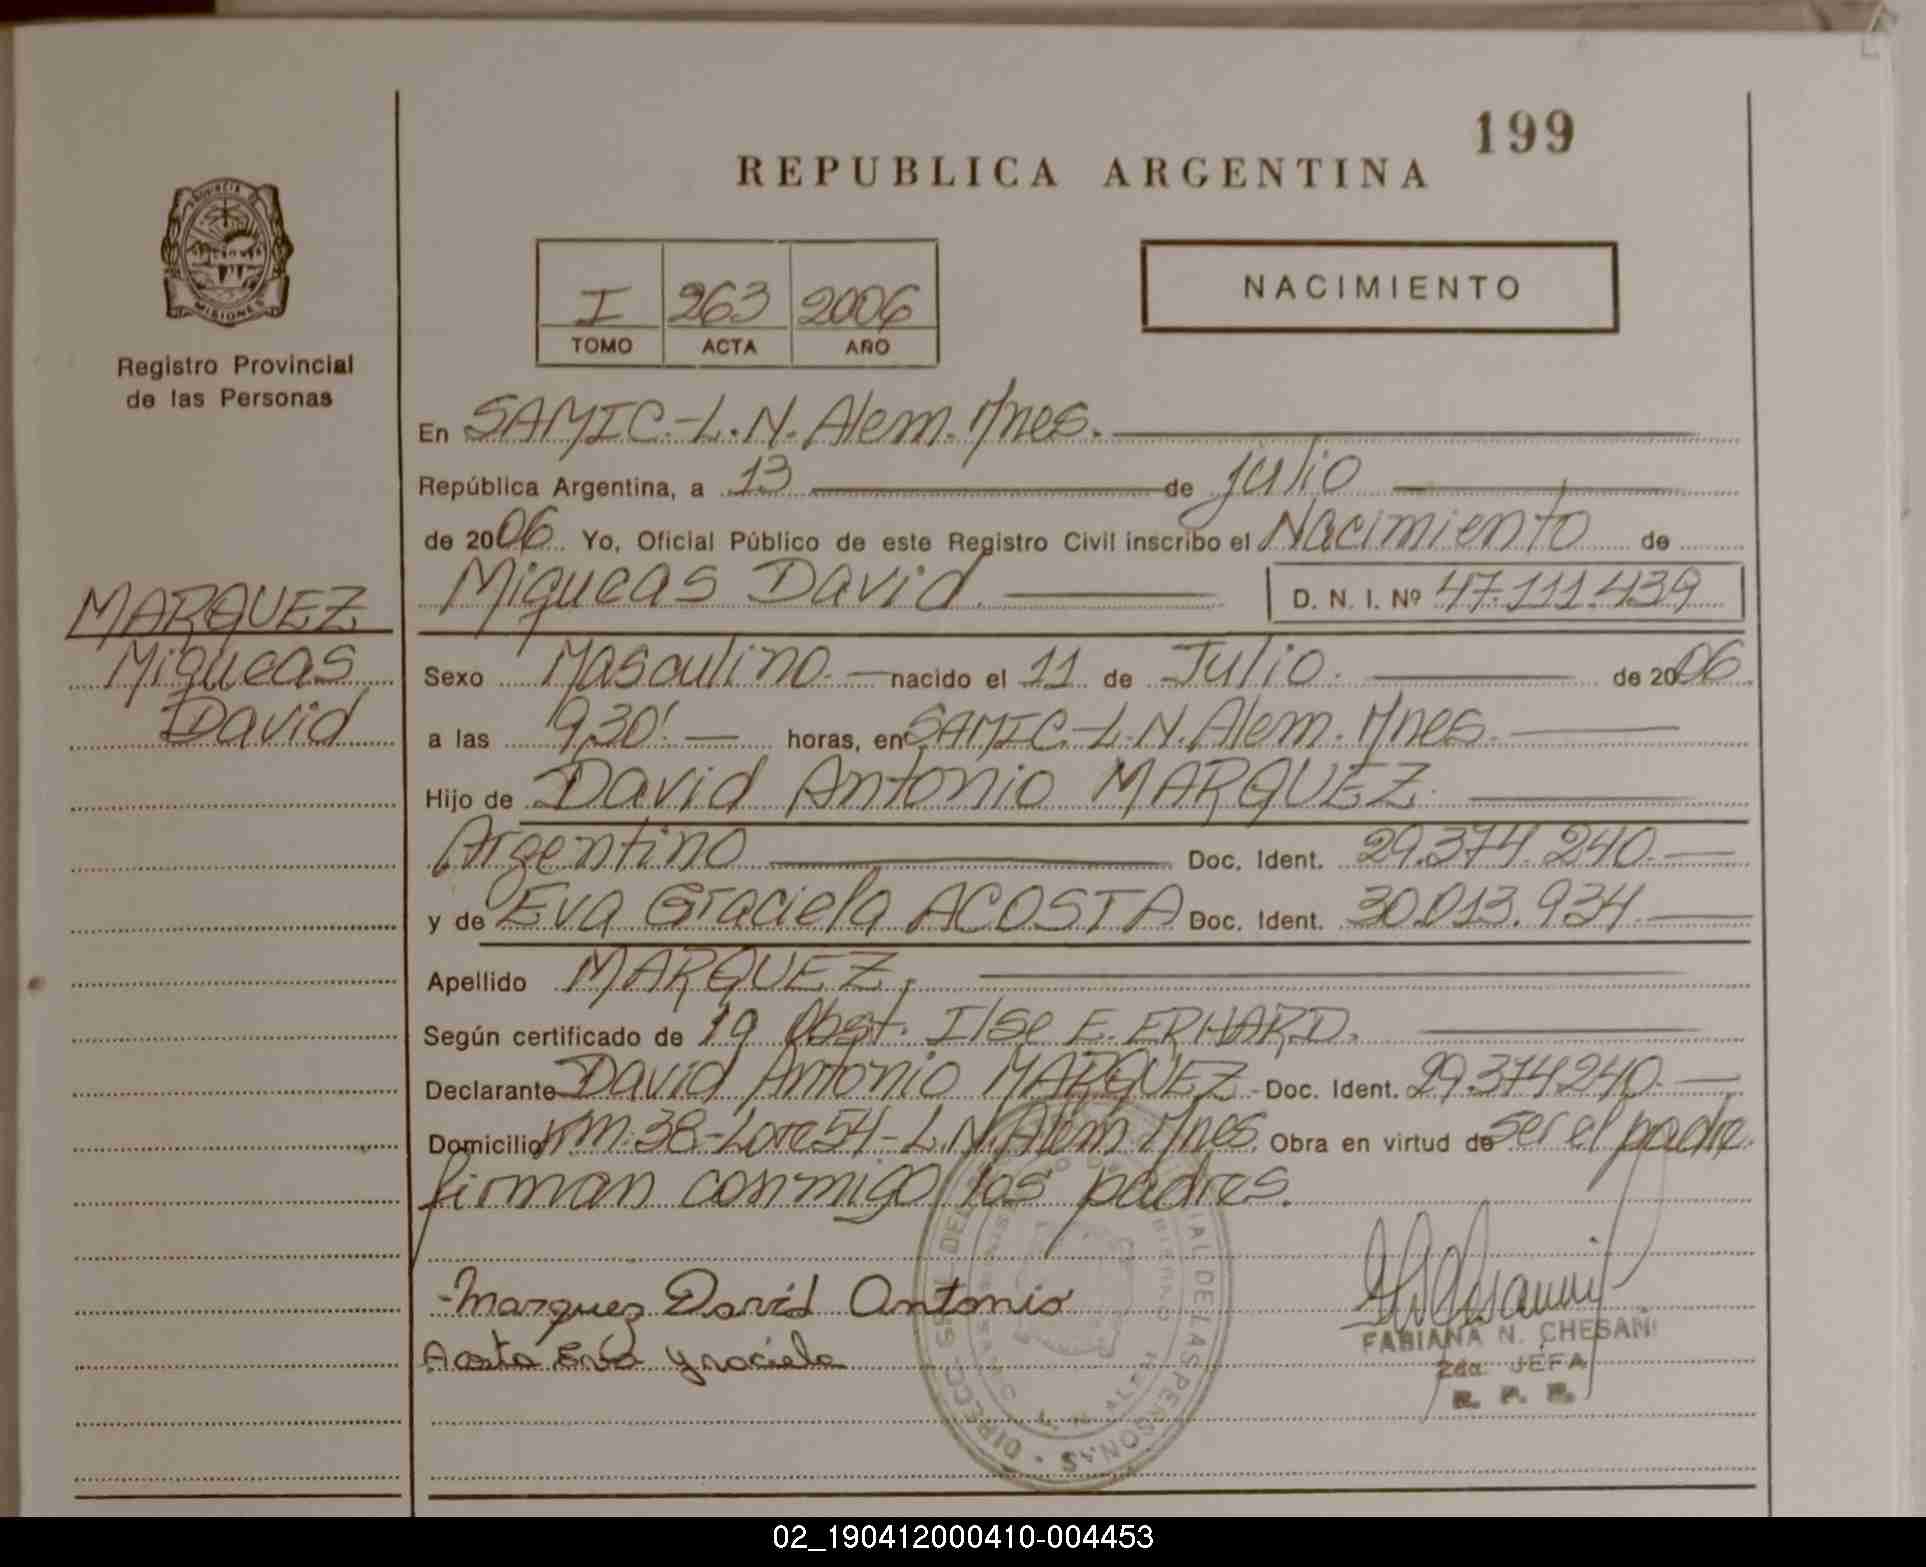 199
REPUBLICA ARGENTINA
PROVINCIA DE
MISIONES
Registro Provincial
de las Personas
I 263 2006
TOMO ACTA AÑO
NACIMIENTO
En SAMIC.-L.N.Alem.Mnes.
República Argentina, a 13 de julio
de 2006 Yo, Oficial Público de este Registro Civil inscribo el Nacimiento de
Miqueas David. D. N. I. Nº 47.111.439
MARQUEZ
Miqueas
David
Sexo Masculino. nacido el 11 de Julio. de 2006
a las 9,30'. horas, en SAMIC.-L.N.Alem.Mnes.
Hijo de David Antonio MARQUEZ.
Argentino Doc. Ident. 29.374.240.
y de Eva Graciela ACOSTA Doc. Ident. 30.013.934.
Apellido MARQUEZ.
Según certificado de Obst. Ilse E. ERHARD.
Declarante David Antonio MARQUEZ.- Doc. Ident. 29.374.240.
Domicilio KM.38-Lote 54-L.N.Alem Mnes. Obra en virtud de ser el padre.
firman conmigo los padres.
-Marquez David Antonio
Acosta Eva graciela
FABIANA N. CHESANI
2da. JEFA
R. P. P.
02_190412000410-004453